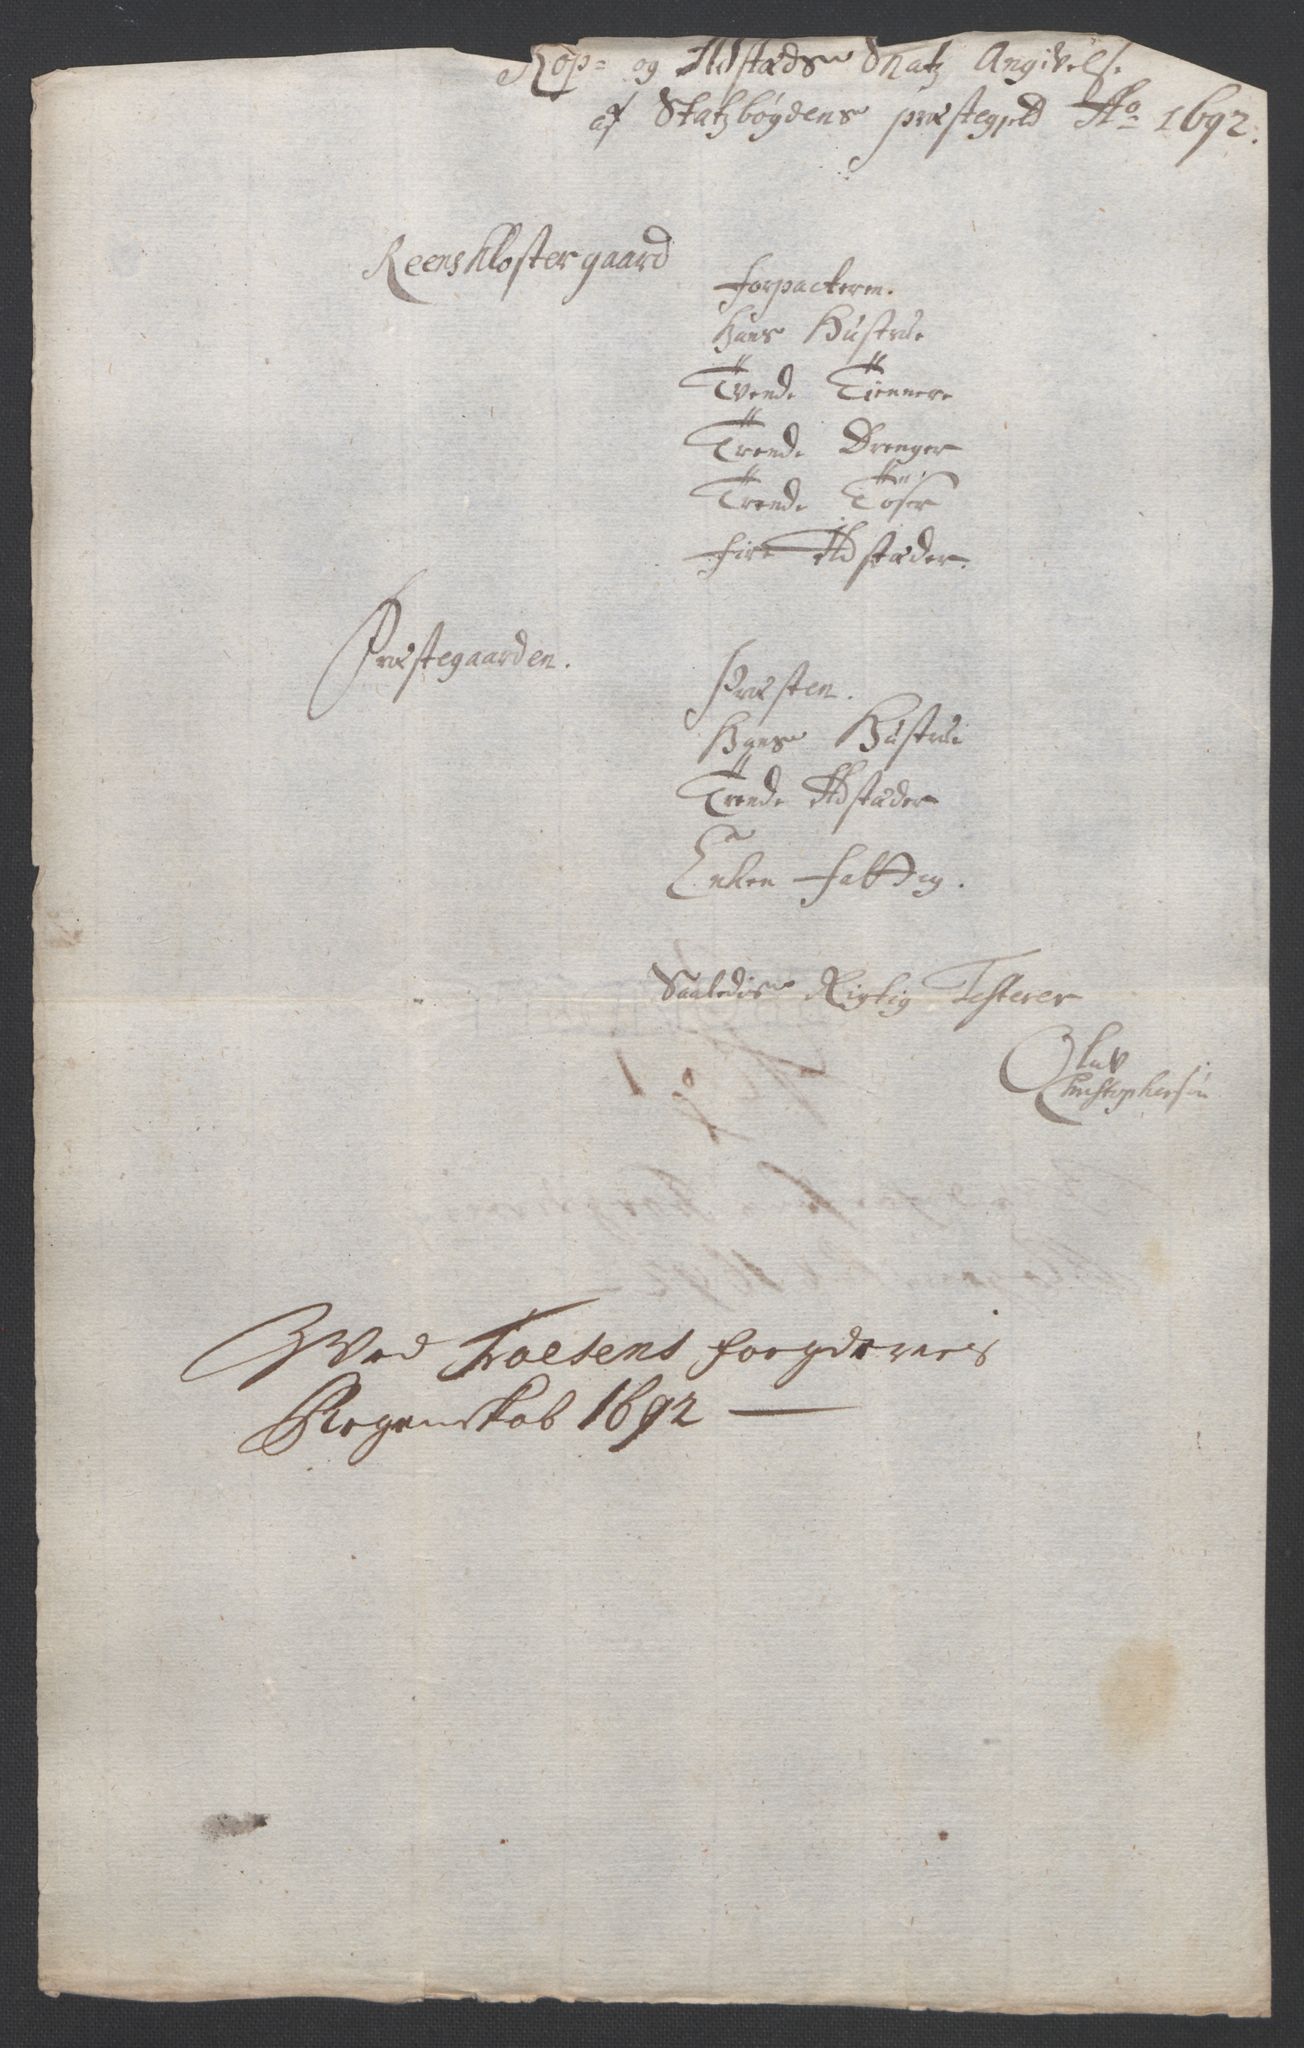 Kop- og Ildstæds Skatz Angivelse
af Statzbøgdens præstegield Ao 1692.
Reens Kloster gaard
forpackteren.
Hans Hustrue
Tvende Tiennere
Trende Drenger
Trende Tøser
fire Ildstæder.
Præstegaarden.
Præsten.
Hans Hustrue
Trende Ildstæder
Enken fattig.
Saaledis Rigtig Testerer
Oluv
Christophersøn
Wed Foesens foegderies
Regenskab 1692